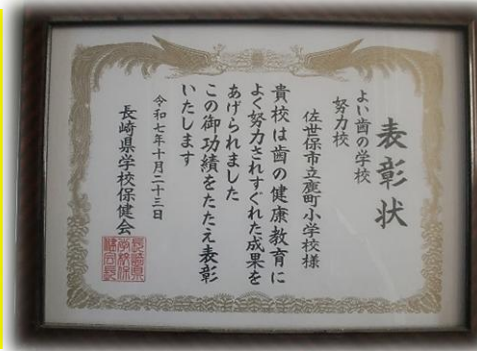 表彰状
よい歯の学校
努力校
佐世保市立鹿町小学校様
貴校は歯の健康教育に
よく努力されすぐれた成果を
あげられました
この御功績をたたえ表彰
いたします
令和七年十月二十三日
長崎県学校保健会